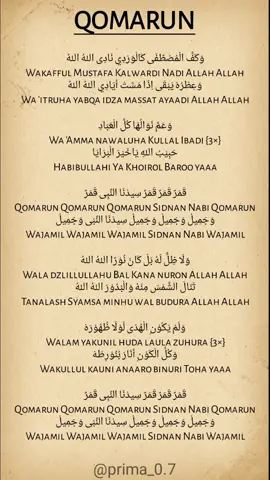 QOMARUN
وَكَفُّ الْمُصْطَفَى كَالْوَرْدِي نَادِى اللهُ اللهُ
Wakafful Mustafa Kalwardi Nadi Allah Allah
وَعِطْرُهَ يَبْقَى إِذَا مَسَّتْ أَيَادِي اللهُ اللهُ
Wa 'itruha yabqa idza massat ayaadi Allah Allah
وَعَمَّ نَوَالُهَا كُلَّ الْعِبَادِ
Wa 'Amma nawaluha Kullal Ibadi {3×}
حَبِيْبُ اللهِ يَا خَيْرَ الْبَرَايَا
Habibullahi Ya Khoirol Baroo yaaa
قَمَرٌ قَمَرٌ قَمَرٌ سِيدْنَا النَّبِى قَمَرٌ
Qomarun Qomarun Qomarun Sidnan Nabi Qomarun
وَجَمِيلْ وَجَمِيلْ وَجَمِيلْ سِيدْنَا النَّبِى وَجَمِيلْ
Wajamil Wajamil Wajamil Sidnan Nabi Wajamil
وَلَا ظِلَّ لَهُ بَلْ كَانَ نُوْرًا اللهُ اللهُ
Wala dzlillullahu Bal Kana nuron Allah Allah
تَنَالُ الشَّمْسَ مِنْهُ وَالْبُدُوْرَ اللهُ اللهُ
Tanalash Syamsa minhu wal budura Allah Allah
وَلَمْ يَكُنِ الْهُدَى لَوْلَا ظُهُوْرُهَ
Walam yakunil huda laula zuhura {3×}
وَكُلُّ الْكَوْنِ أَنَارَ بِنُوْرِطٰهَ
Wakullul kauni anaaro binuri Toha yaaa
قَمَرٌ قَمَرٌ قَمَرٌ سِيدْنَا النَّبِى قَمَرٌ
Qomarun Qomarun Qomarun Sidnan Nabi Qomarun
وَجَمِيلْ وَجَمِيلْ وَجَمِيلْ سِيدْنَا النَّبِى وَجَمِيلْ
Wajamil Wajamil Wajamil Sidnan Nabi Wajamil
@prima_0.7